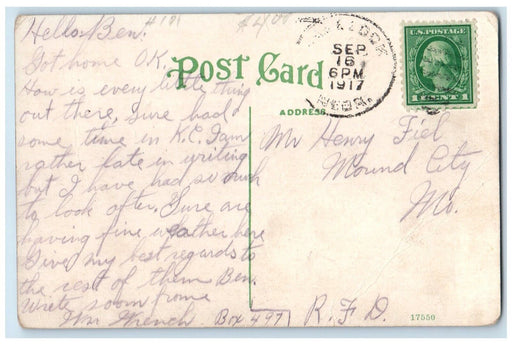 Hello Ben. #181 $4.00
Got home O.K.
How is every little thing
out there, Sure had
some time in K.C. I am
rather late in writing
but I have had so much
to look after. Sure are
having fine weather here
Give my best regards to
the rest of them Ben.
Write soon from
Wm Wrench Box 497
POST CARD
ADDRESS
SEP
16
6PM
1917
NEBR.
U.S. POSTAGE
1 CENT 1
Mr Henry Fiel
Mound City
Mo.
R.F.D.
17550